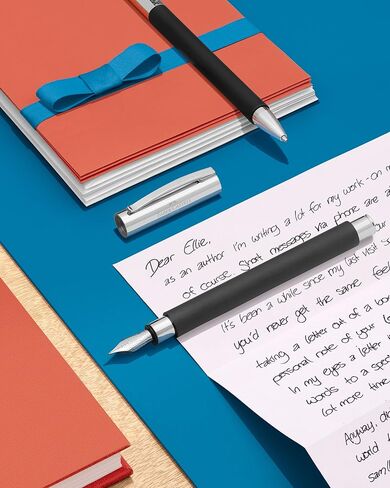 Dear Ellie,
as an author I'm writing a lot for my work - on m
of course. Short messages via phone are a
It's been a while since my last visit s
you'd never get the same feel
taking a letter out of a
personal note of your
In my eyes a letter
words to a spe
lot more time
Anyway,
world